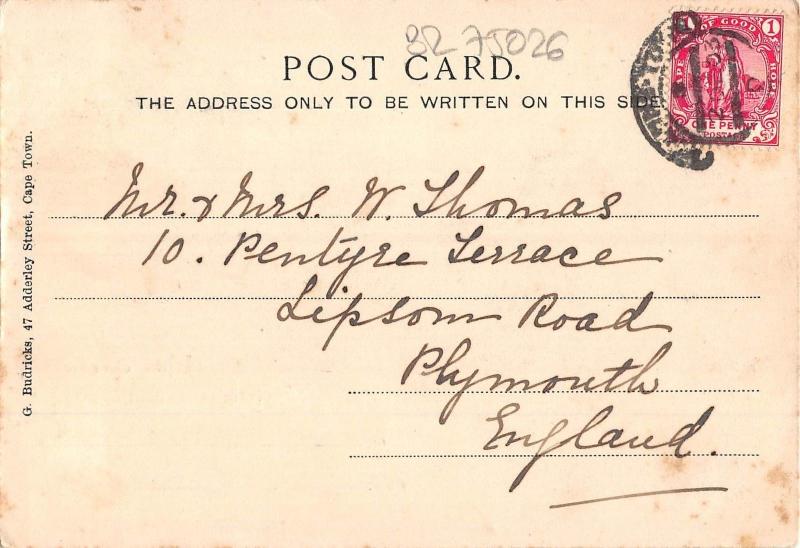 BR 75026
POST CARD.
THE ADDRESS ONLY TO BE WRITTEN ON THIS SIDE.
CAPE OF GOOD HOPE
1
ONE PENNY
POSTAGE
Mr. & Mrs. W. Thomas
10. Pentyre Terrace
Lipsom Road
Plymouth
England.
G. Budricks, 47 Adderley Street, Cape Town.